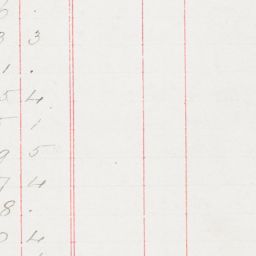 6 .
3 3
1 .
5 4
5 1
9 5
7 4
8 .
0 4